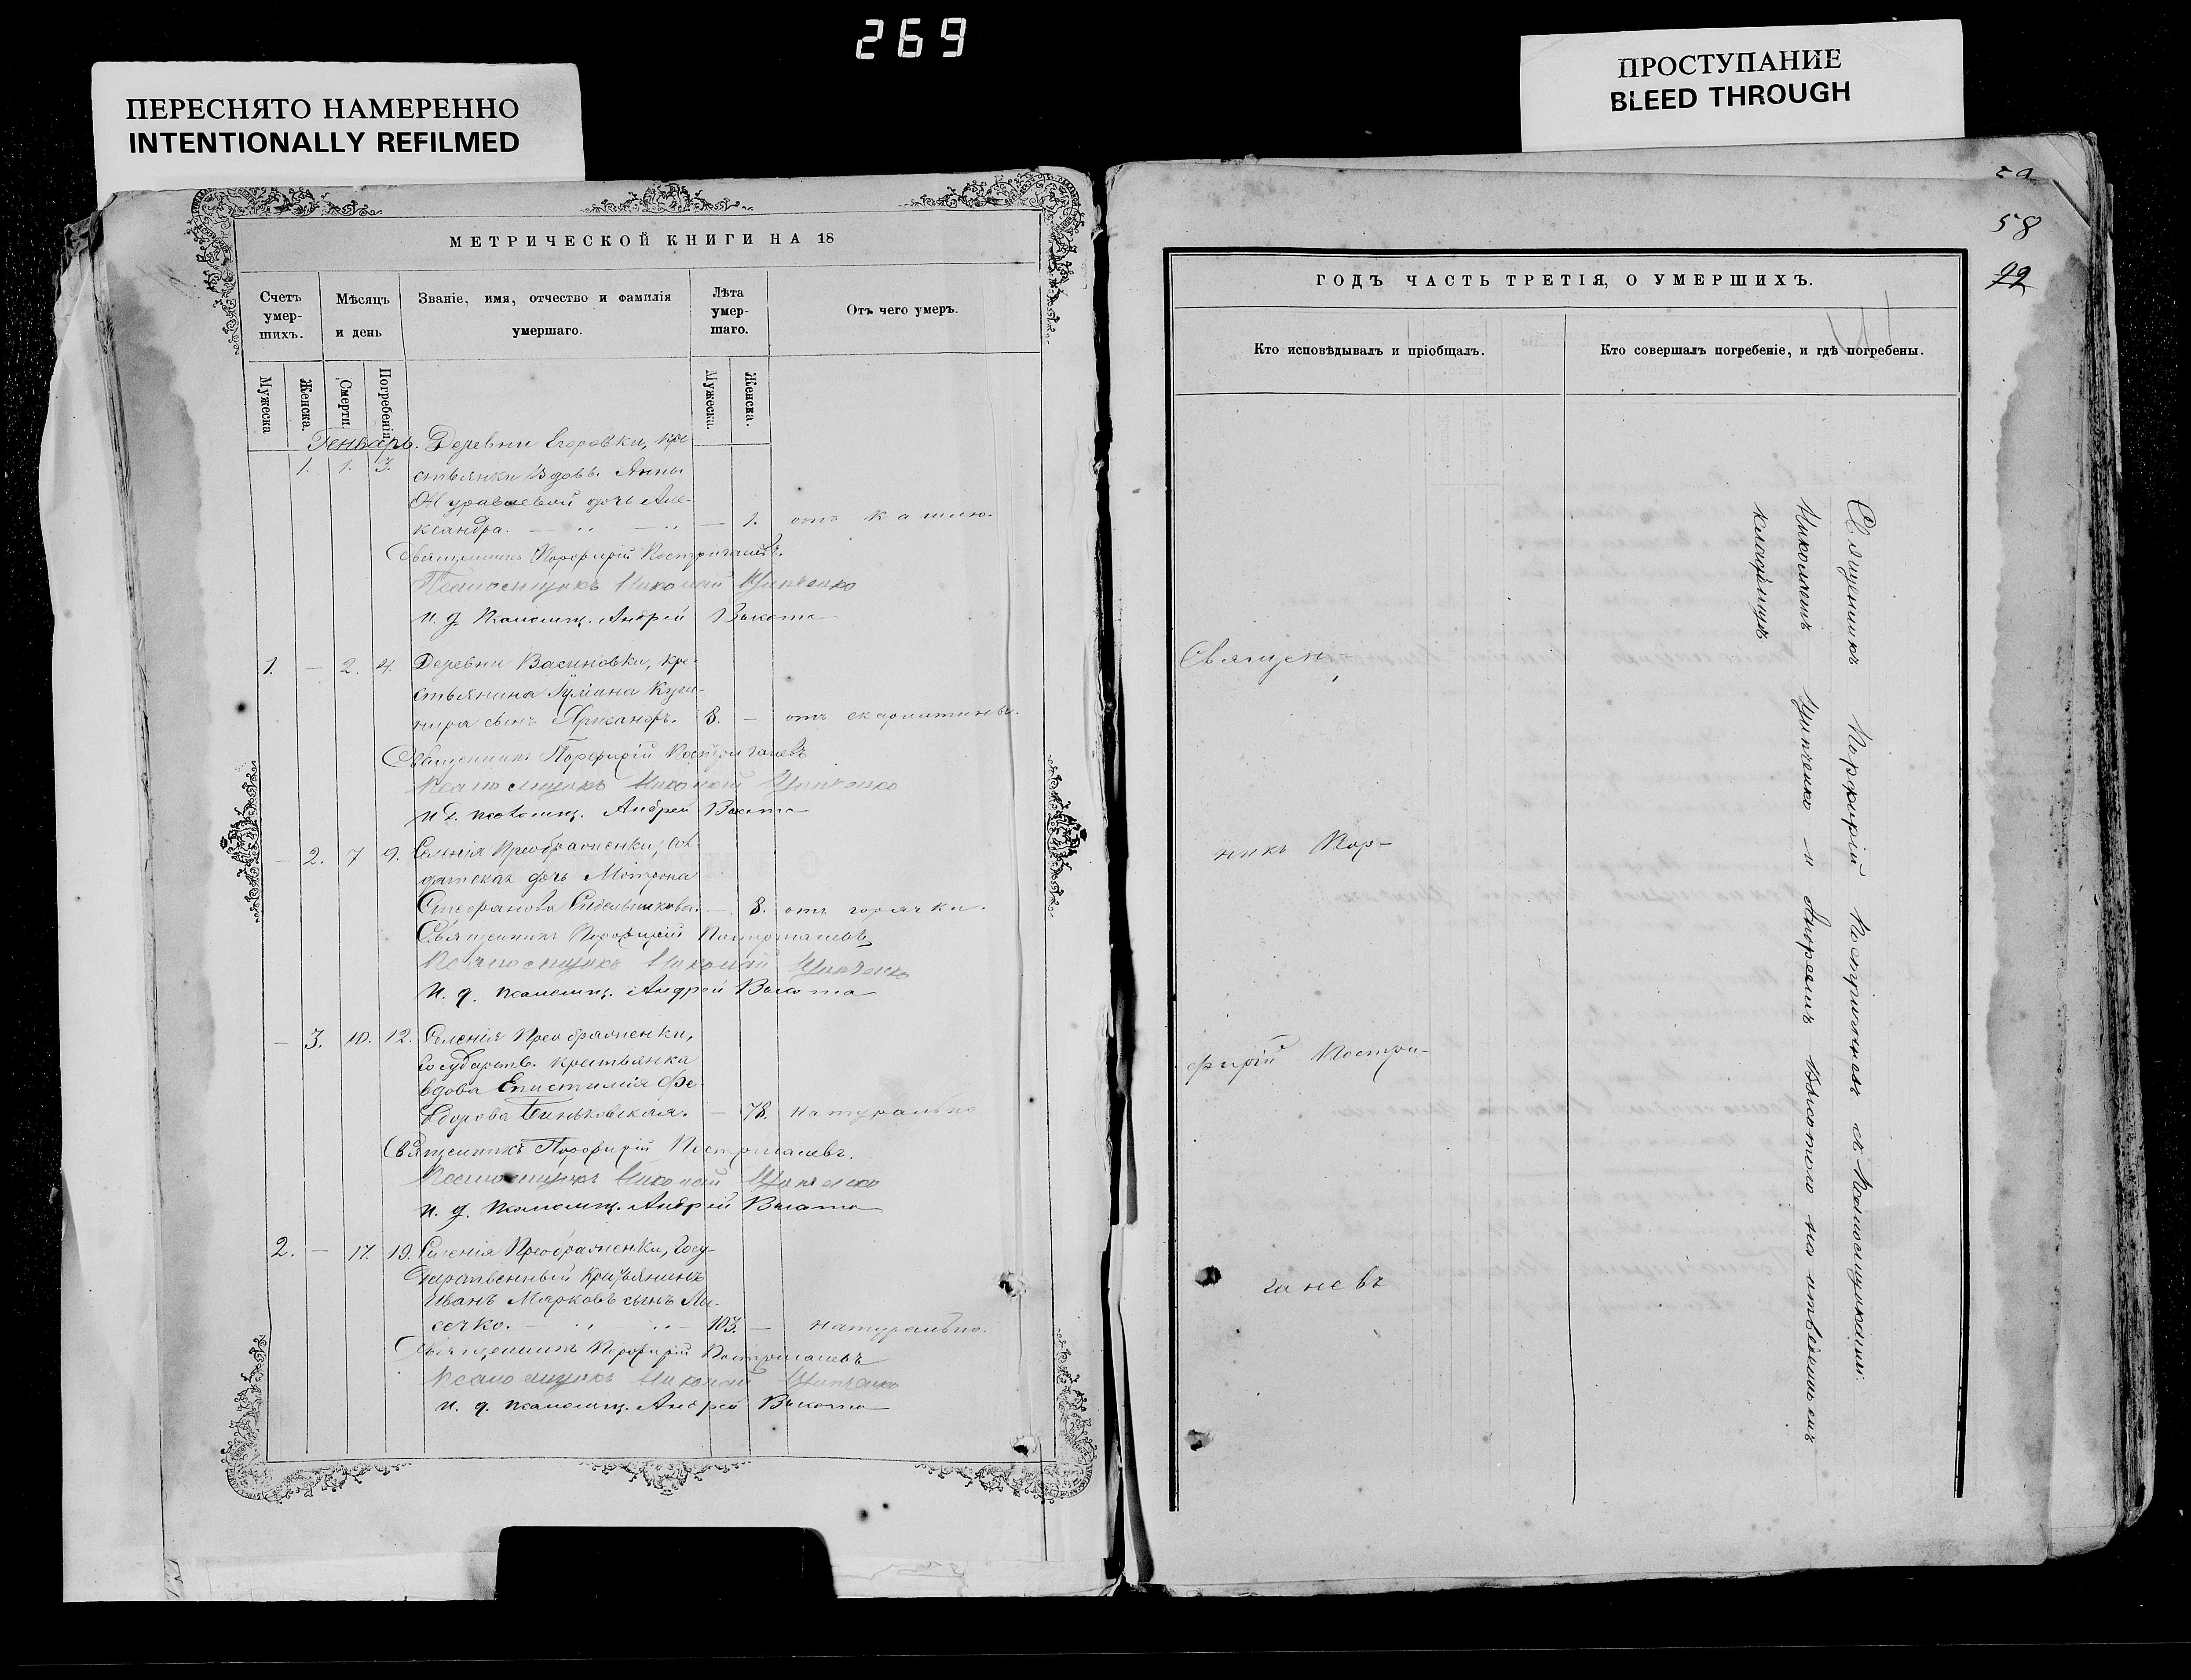 269
ПЕРЕСНЯТО НАМЕРЕННО
INTENTIONALLY REFILMED
ПРОСТУПАНИЕ
BLEED THROUGH
МЕТРИЧЕСКОЙ КНИГИ НА 18
Счетъ умер-шихъ.
Мѣсяцъ и день
Званіе, имя, отчество и фамилія умершаго.
Лѣта умер-шаго.
Отъ чего умеръ.
Мужеска
Женска.
Смерти.
Погребенія.
Мужеска.
Женска.
Генварь. Деревни Егоровки, кре-
1. 1. 3. стьянки вдовы Анны
Журавлевой дочь Але-
ксандра. — 1. отъ кашлю.
Священникъ Порфирій Постригачевъ.
Псаломщикъ Николай Ципченко
и. д. псаломщ. Андрей Высота
1. — 2. 4. Деревни Васиновки, кре-
стьянина
сынъ 8. — отъ скарлатины.
Священникъ Порфирій Постригачевъ
Псаломщикъ Николай Ципченко
и д. псаломщ. Андрей Высота
— 2. 7 9. Селенія Преображенки, сол-
датская дочь Мотрона
Стефанова — 8. отъ горячки.
Священникъ Порфирій Постригачевъ
Псаломщикъ Николай Ципченко
и. д. псаломщ. Андрей Высота
— 3. 10. 12. Селенія Преображенки,
Государств. крестьянка
вдова Епистимія Фе-
дорова — 78. натурально
Священникъ Порфирій Постригачевъ.
Псаломщикъ Николай Ципченко
и. д. псаломщ. Андрей Высота
2. — 17. 19. Селенія Преображенки, Госу-
дарственный крестьянинъ
Иванъ Марковъ сынъ Ли-
сечко. — 103. — натурально.
Священникъ Порфирій Постригачевъ
Псаломщикъ Николай Ципченко
и. д. псаломщ. Андрей Высота
58
ГОДЪ ЧАСТЬ ТРЕТІЯ, О УМЕРШИХЪ.
Кто исповѣдывалъ и пріобщалъ.
Кто совершалъ погребеніе, и гдѣ погребены.
Священ-
никъ Пор-
фирій Постри-
гачевъ
Священникъ Порфирій Постригачевъ съ Псаломщиками:
Николаемъ Ципченко и Андреемъ Высотою на
кладбищѣ